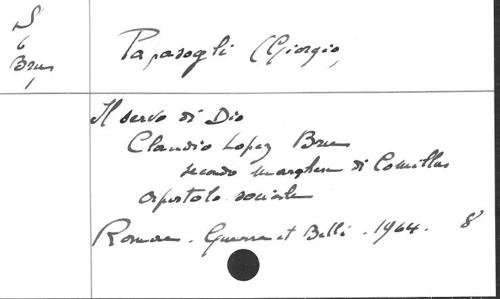 S
6
Bru
1
Papasogli (Giorgio)
Il servo di Dio
Claudio Lopez Bru
secondo marghese di Comillas
apostolo sociale
Roma. Guerra et Belli. 1964. 8°